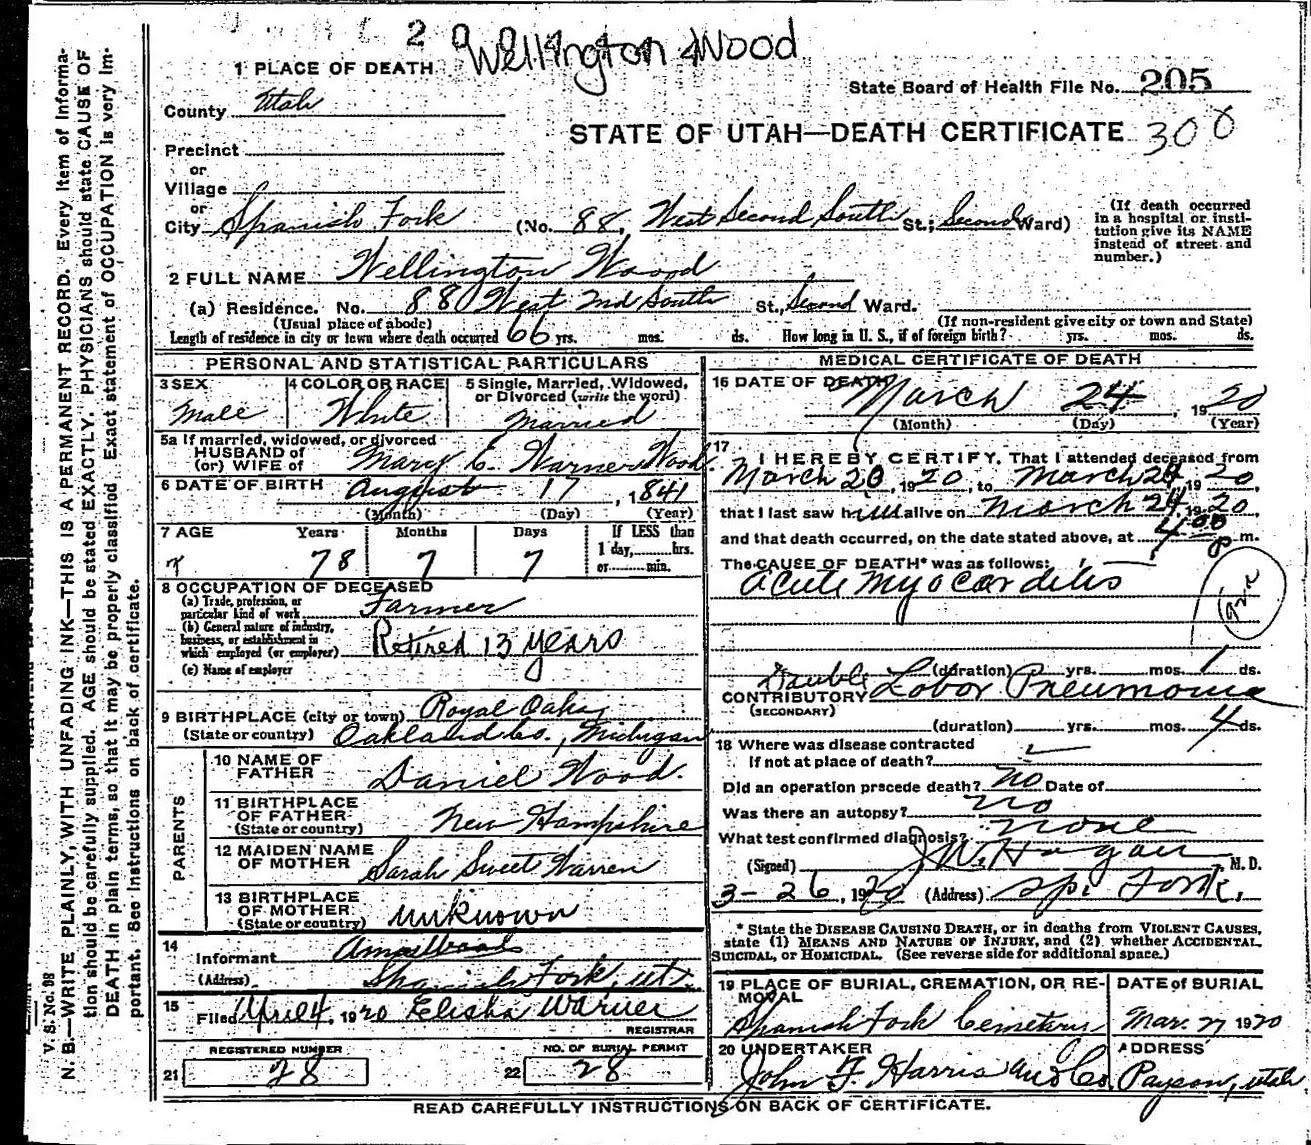 2 Wellington Wood
1 PLACE OF DEATH
State Board of Health File No. 205
County Utah
STATE OF UTAH—DEATH CERTIFICATE 300
Precinct
or
Village
or
City Spanish Fork (No. 88, West Second South St.; Second Ward)
(If death occurred in a hospital or institution give its NAME instead of street and number.)
2 FULL NAME Wellington Wood
(a) Residence. No. 880 West 2nd South St., Second Ward.
(Usual place of abode) (If non-resident give city or town and State)
Length of residence in city or town where death occurred 66 yrs. mos. ds. How long in U. S., if of foreign birth? yrs. mos. ds.
PERSONAL AND STATISTICAL PARTICULARS
3 SEX Male
4 COLOR OR RACE White
5 Single, Married, Widowed, or Divorced (write the word) Married
5a If married, widowed, or divorced
HUSBAND of
(or) WIFE of Mary E. Warner Wood
6 DATE OF BIRTH August 17, 1841
(Month) (Day) (Year)
7 AGE Years 78 Months 7 Days 7
If LESS than 1 day, hrs. or min.
8 OCCUPATION OF DECEASED
(a) Trade, profession, or particular kind of work Farmer
(b) General nature of industry, business, or establishment in which employed (or employer) Retired 13 years
(c) Name of employer
9 BIRTHPLACE (city or town) Royal Oaks,
(State or country) Oakland Co., Michigan
PARENTS
10 NAME OF FATHER Daniel Wood.
11 BIRTHPLACE OF FATHER (State or country) New Hampshire
12 MAIDEN NAME OF MOTHER Sarah Sweet Warren
13 BIRTHPLACE OF MOTHER (State or country) unknown
14 Informant
(Address) Spanish Fork, ut.
15 Filed April 4, 1920 Elisha Warner
REGISTRAR
REGISTERED NUMBER
21 28
NO. OF BURIAL PERMIT
22 28
MEDICAL CERTIFICATE OF DEATH
16 DATE OF DEATH March 24, 1920
(Month) (Day) (Year)
17 I HEREBY CERTIFY, That I attended deceased from
March 20, 1920, to March 24, 1920,
that I last saw him alive on March 24, 1920,
and that death occurred, on the date stated above, at 4 00 p m.
The CAUSE OF DEATH* was as follows:
acute myocarditis
(duration) yrs. mos. 1 ds.
CONTRIBUTORY Double Lobor Pneumonia
(SECONDARY)
(duration) yrs. mos. 4 ds.
18 Where was disease contracted
If not at place of death?
Did an operation precede death? no Date of
Was there an autopsy? no
What test confirmed diagnosis? none
(Signed) J.W. Hagan M. D.
3-26, 1920 (Address) Sp. Fork,
* State the DISEASE CAUSING DEATH, or in deaths from VIOLENT CAUSES,
state (1) MEANS AND NATURE OF INJURY, and (2) whether ACCIDENTAL,
SUICIDAL, or HOMICIDAL. (See reverse side for additional space.)
19 PLACE OF BURIAL, CREMATION, OR REMOVAL Spanish Fork Cemetery
DATE of BURIAL Mar. 27 1920
20 UNDERTAKER John F. Harris and Co.
ADDRESS Payson, utah
READ CAREFULLY INSTRUCTIONS ON BACK OF CERTIFICATE.
V. S. No. 98
N. B—WRITE PLAINLY, WITH UNFADING INK—THIS IS A PERMANENT RECORD. Every item of informa-
tion should be carefully supplied. AGE should be stated EXACTLY. PHYSICIANS should state CAUSE OF
DEATH in plain terms, so that it may be properly classified. Exact statement of OCCUPATION is very im-
portant. See instructions on back of certificate.